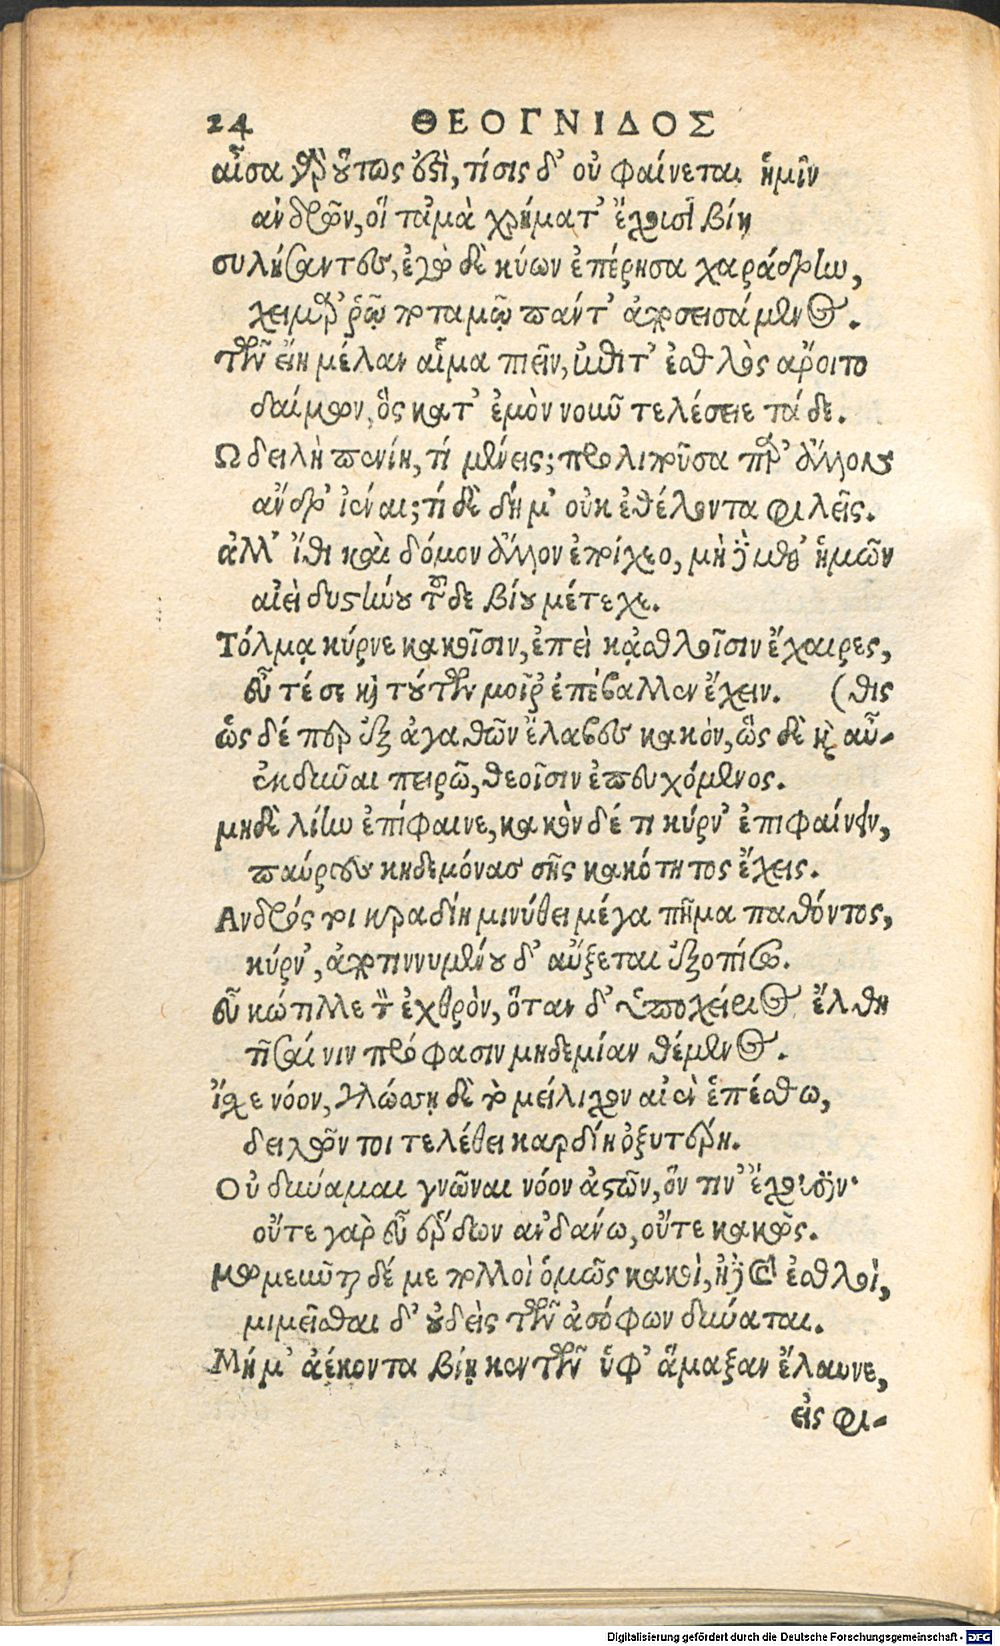 24 ΘΕΟΓΝΙΔΟΣ
αἶσα γὰρ οὕτως ἐστὶ, τίσις δ' οὐ φαίνεται ἡμῖν
ἀνδρῶν, οἳ τἀμὰ χρήματ' ἔχουσι βίῃ
συλήσαντες, ἐγὼ δὲ κύων ἐπέρησα χαράδρην,
χειμάρρῳ ποταμῷ πάντ' ἀποσεισάμενος.
τῶν εἴη μέλαν αἷμα πιεῖν, ἐπί τ' ἐσθλὸς ὄροιτο
δαίμων, ὃς κατ' ἐμὸν νοῦν τελέσειε τάδε.
Ω δειλὴ πενίη, τί μένεις; προλιποῦσα παρ' ἄλλον
ἄνδρ' ἰέναι; τί δὲ δή μ' οὐκ ἐθέλοντα φιλεῖς.
ἀλλ' ἴθι καὶ δόμον ἄλλον ἐποίχεο, μὴ δὲ μεθ' ἡμῶν
αἰεὶ δυστήνου τοῦδε βίου μέτεχε.
Τόλμα κύρνε κακοῖσιν, ἐπεὶ κᾀσθλοῖσιν ἔχαιρες,
εὖτέ σε καὶ τούτων μοῖρ' ἐπέβαλλεν ἔχειν. (θις
ὡς δέ περ ἐξ ἀγαθῶν ἔλαβες κακὸν, ὣς δὲ καὶ αὖ-
ἐκδῦναι πειρῶ, θεοῖσιν ἐπευχόμενος.
μηδὲ λίην ἐπίφαινε, κακὸν δέ τι κύρν' ἐπιφαίνειν,
παύρους κηδεμόνας σῆς κακότητος ἔχεις.
Ανδρός τοι κραδίη μινύθει μέγα πῆμα παθόντος,
κύρν', ἀποτιννυμένου δ' αὔξεται ἐξοπίσω.
εὖ κώτιλλε τὸν ἐχθρὸν, ὅταν δ' ὑποχείριος ἔλθῃ
τῖσαί νιν πρόφασιν μηδεμίαν θέμενος.
ἴσχε νόον, γλώσσῃ δὲ τὸ μείλιχον αἰὲν ἐπέσθω,
δειλῶν τοι τελέθει καρδίη ὀξυτέρη.
Οὐ δύναμαι γνῶναι νόον ἀστῶν, ὅν τιν' ἔχουσιν·
οὔτε γὰρ εὖ ἔρδων ἁνδάνω, οὔτε κακῶς.
μωμεῦνται δέ με πολλοὶ ὁμῶς κακοὶ, ἠδὲ καὶ ἐσθλοὶ,
μιμεῖσθαι δ' οὐδεὶς τῶν ἀσόφων δύναται.
Μή μ' ἀέκοντα βίῃ κεντῶν ὑφ' ἅμαξαν ἔλαυνε,
εἰς φι-
Digitalisierung gefördert durch die Deutsche Forschungsgemeinschaft - DFG